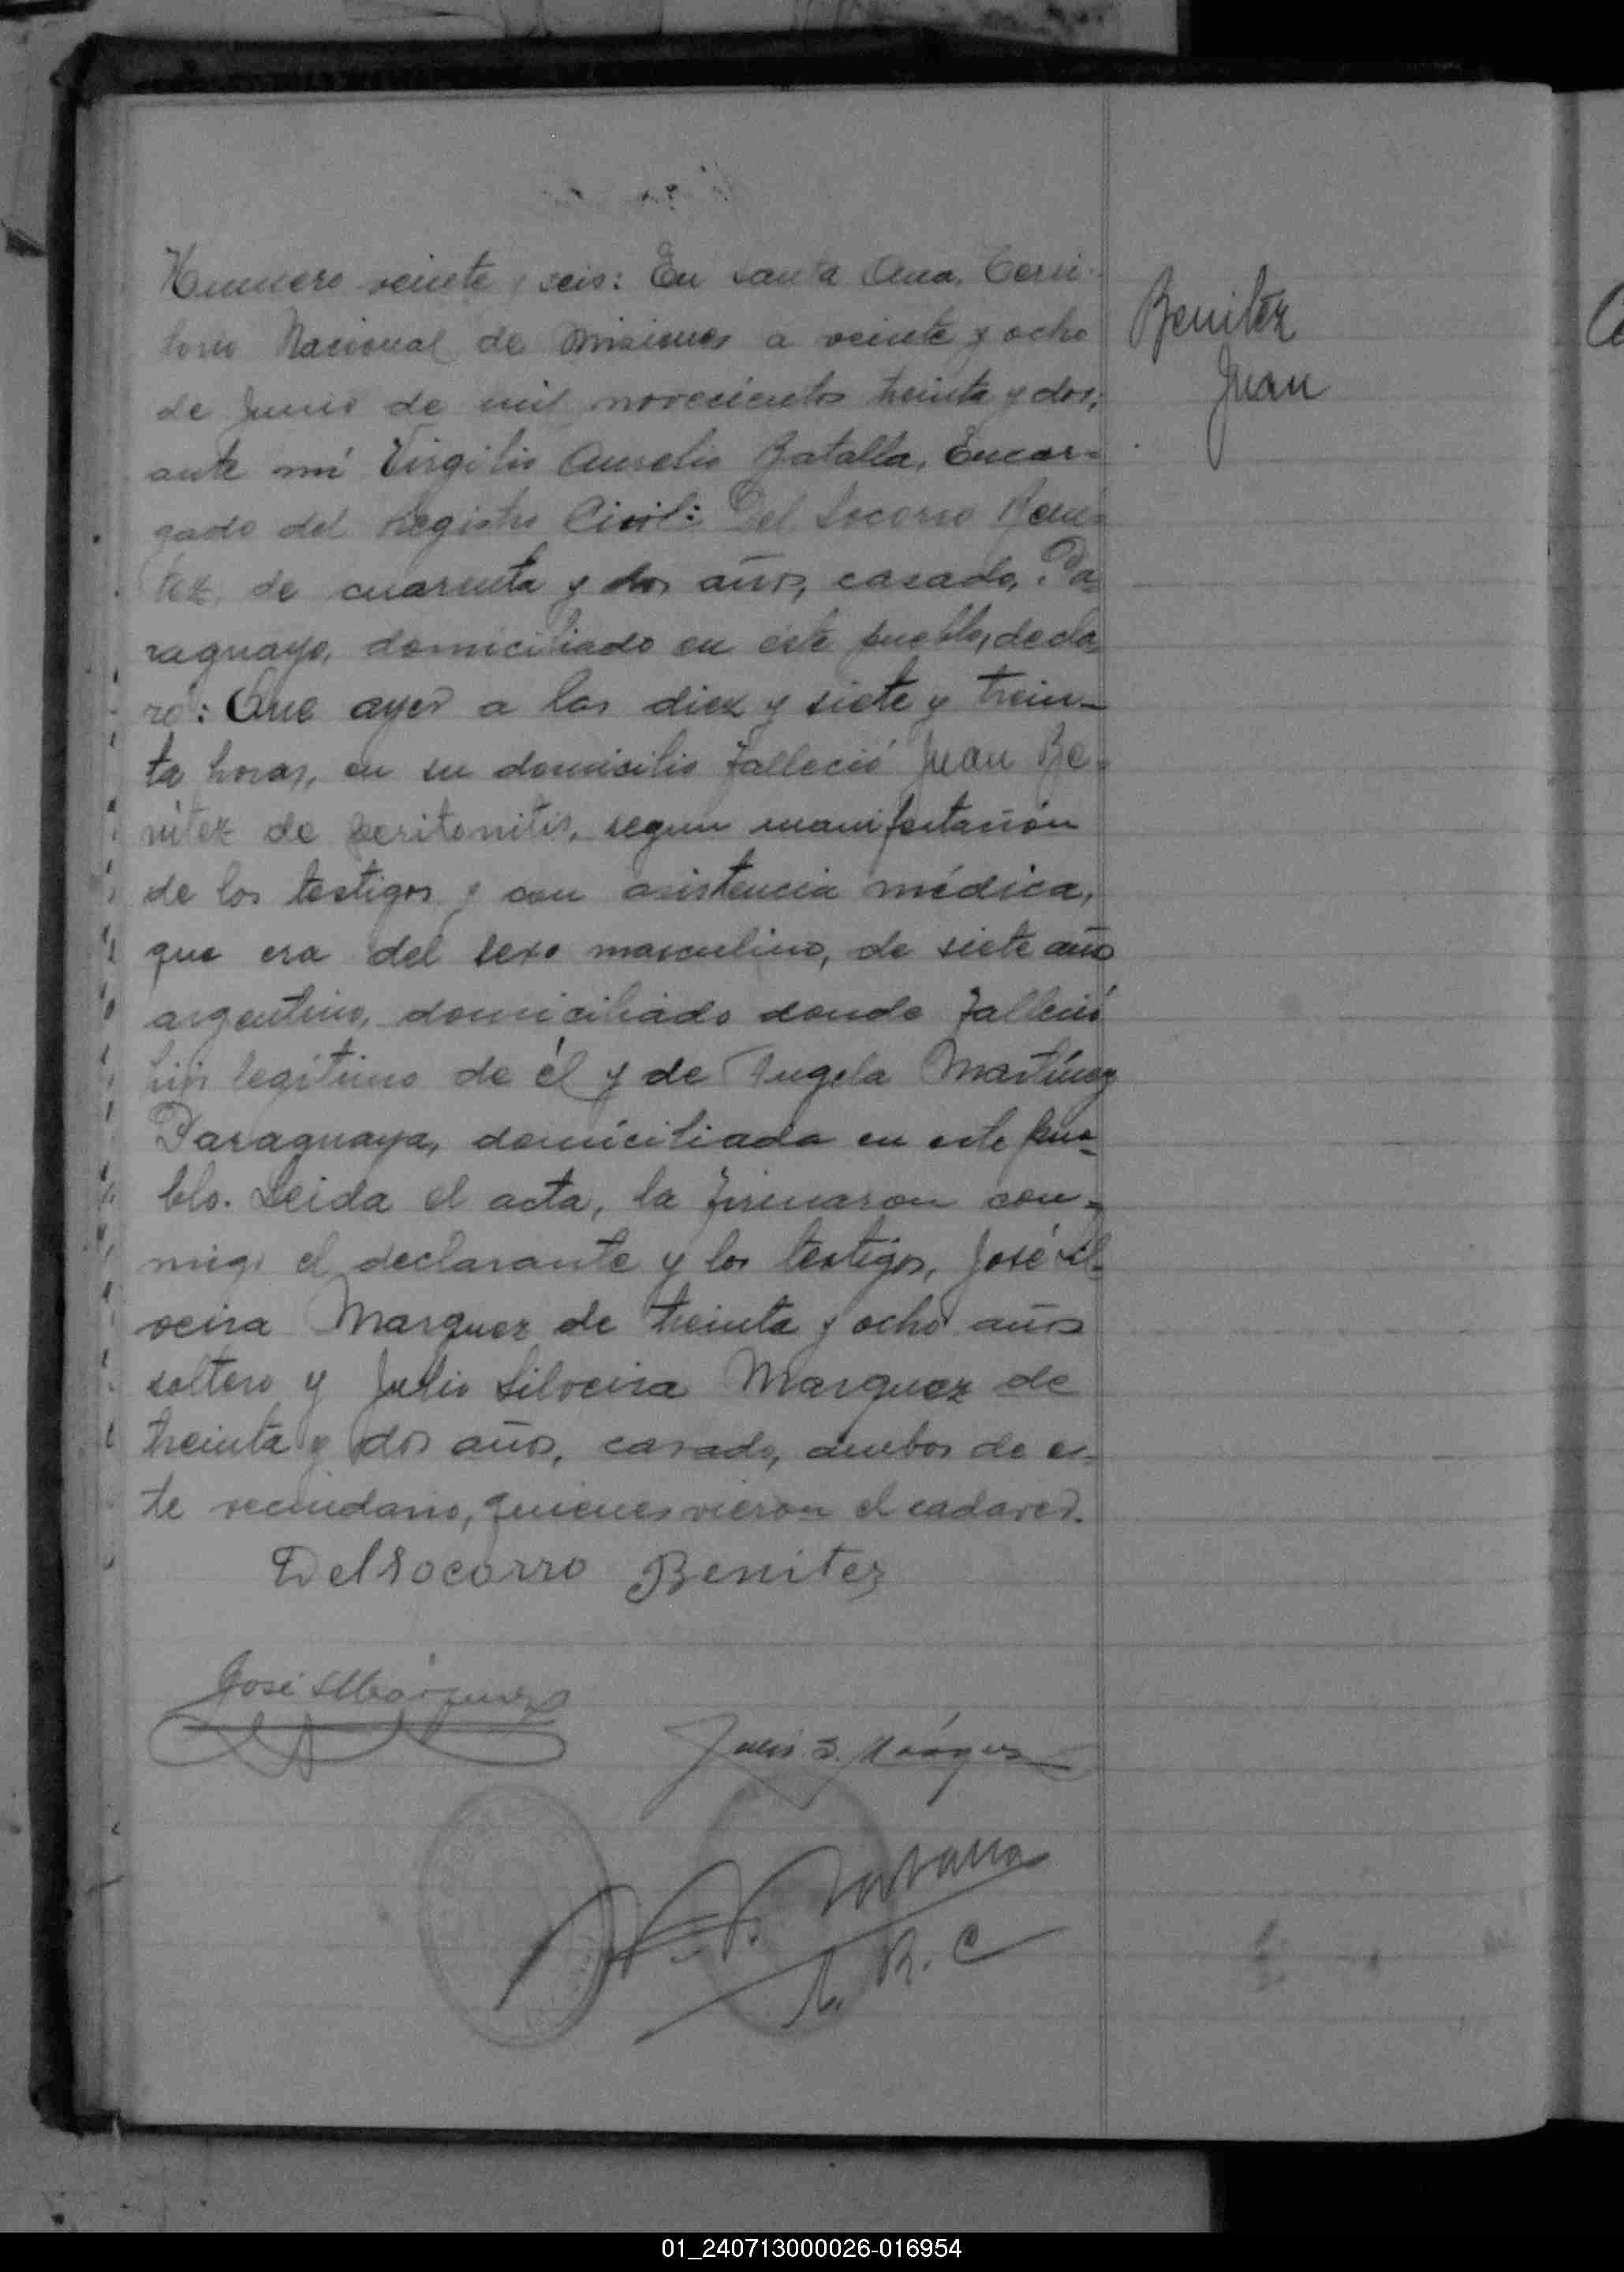 Numero veinte y seis: En Santa Ana, Terri-
torio Nacional de Misiones a veinte y ocho
de Junio de mil novecientos treinta y dos,
ante mí Virgilio Aurelio Batalla, Encar=
gado del Registro Civil: Del Socorro Bení=
tez, de cuarenta y dos años, casado, Pa=
raguayo, domiciliado en este pueblo, decla=
ró: Que ayer a las diez y siete y trein-
ta horas, en su domicilio falleció Juan Be-
nítez de peritonitis, segun manifestación
de los testigos y con asistencia médica,
que era del sexo masculino, de siete años
argentino, domiciliado donde falleció
hijo legítimo de él y de Angela Martínez
Paraguaya, domiciliada en este pue=
blo. Leida el acta, la firmaron con=
migo el declarante y los testigos, José Sil-
veira Marquez de treinta y ocho años
soltero y Julio Silveira Marquez de
treinta y dos años, casado, ambos de es-
te vecindario, quienes vieron el cadaver.
Benitez
Juan
DelSocorro Benitez
José SMárquez
Julio S. Márquez
Batalla
R. C
01_240713000026-016954